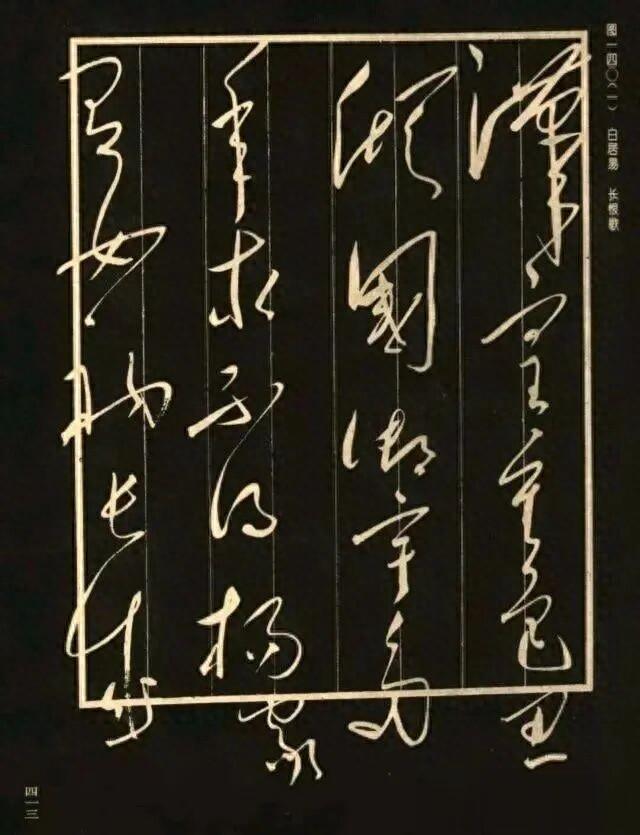 图一四〇(一) 白居易 长恨歌
漢皇重色思
傾國御宇多
年求不得楊家
有女初長成
四一三